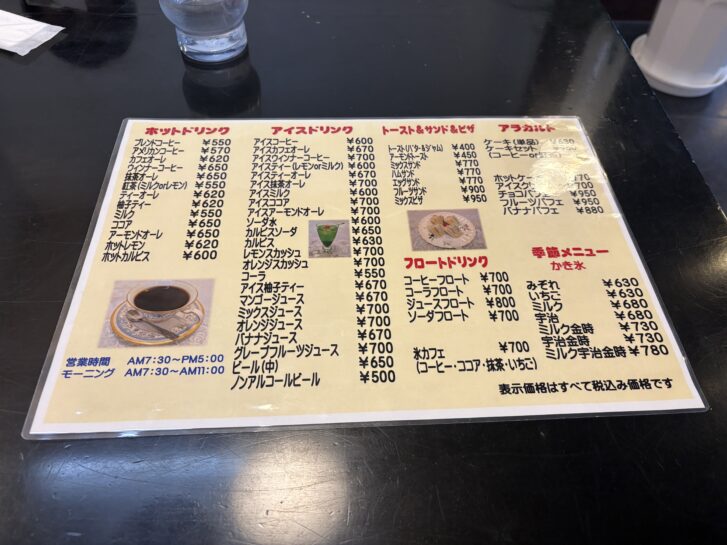 ホットドリンク
ブレンドコーヒー ¥550
アメリカンコーヒー ¥570
カフェオーレ ¥620
ウインナーコーヒー ¥650
抹茶オーレ ¥650
紅茶(ミルクorレモン) ¥550
ティーオーレ ¥620
柚子ティー ¥620
ミルク ¥550
ココア ¥650
アーモンドオーレ ¥650
ホットレモン ¥620
ホットカルピス ¥600
営業時間 AM7:30~PM5:00
モーニング AM7:30~AM11:00
アイスドリンク
アイスコーヒー ¥600
アイスカフェオーレ ¥670
アイスウインナーコーヒー ¥700
アイスティー(レモンorミルク) ¥600
アイスティーオーレ ¥670
アイス抹茶オーレ ¥700
アイスミルク ¥600
アイスココア ¥700
アイスアーモンドオーレ ¥700
ソーダ水 ¥600
カルピスソーダ ¥650
カルピス ¥630
レモンスカッシュ ¥700
オレンジスカッシュ ¥700
コーラ ¥550
アイス柚子ティー ¥670
マンゴージュース ¥670
ミックスジュース ¥700
オレンジジュース ¥700
バナナジュース ¥670
グレープフルーツジュース ¥700
ビール(中) ¥650
ノンアルコールビール ¥500
トースト&サンド&ピザ
トースト(バター&ジャム) ¥400
アーモンドトースト ¥450
ミックスサンド ¥770
ハムサンド ¥770
エッグサンド ¥770
フルーツサンド ¥900
ミックスピザ ¥950
フロートドリンク
コーヒーフロート ¥700
コーラフロート ¥700
ジュースフロート ¥800
ソーダフロート ¥700
氷カフェ ¥700
(コーヒー・ココア・抹茶・いちご)
アラカルト
ケーキ(単品)
ケーキセット
(コーヒーor紅茶)
ホットケーキ
アイスク
チョコパフェ ¥950
フルーツパフェ ¥950
バナナパフェ ¥880
季節メニュー
かき氷
みぞれ ¥630
いちご ¥630
ミルク ¥680
宇治 ¥680
ミルク金時 ¥730
宇治金時 ¥730
ミルク宇治金時 ¥780
表示価格はすべて税込み価格です